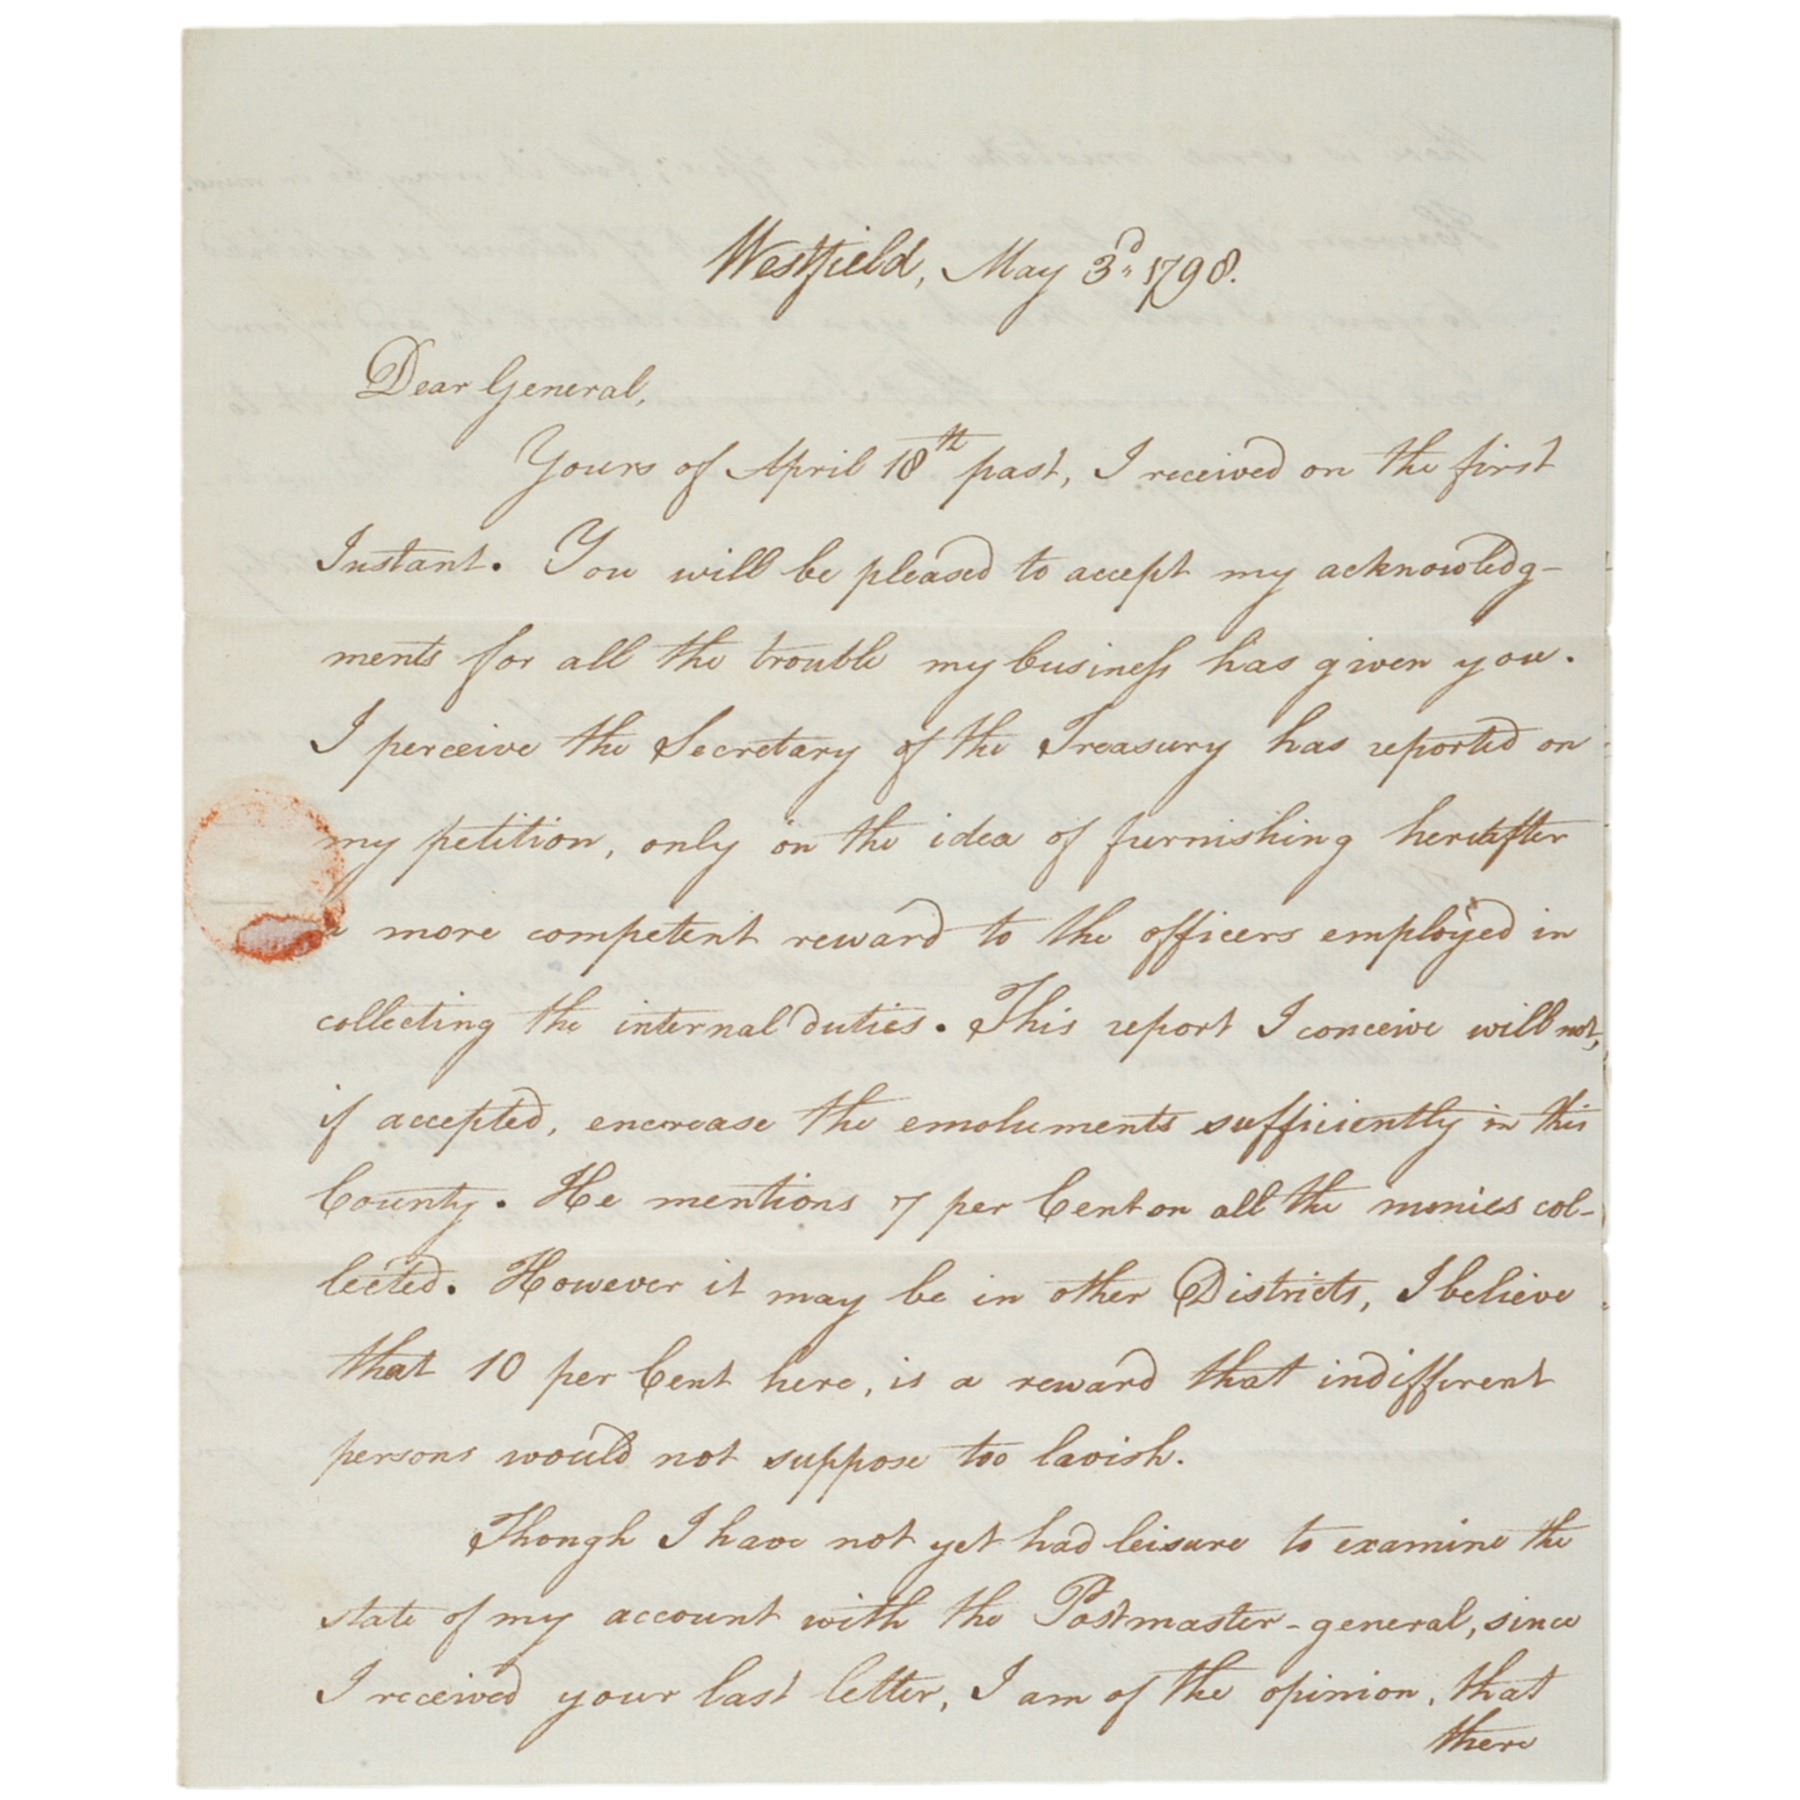 Westfield, May 3d, 1798.
Dear General,
Yours of April 18th past, I received on the first
Instant. You will be pleased to accept my acknowledg-
ments for all the trouble my business has given you.
I perceive the Secretary of the Treasury has reported on
my petition, only on the idea of furnishing hereafter
a more competent reward to the officers employed in
collecting the internal duties. This report I conceive will not,
if accepted, encrease the emoluments sufficiently in this
County. He mentions 7 per Cent on all the monies col-
lected. However it may be in other Districts, I believe
that 10 per Cent here, is a reward that indifferent
persons would not suppose too lavish.
Though I have not yet had leisure to examine the
state of my account with the Postmaster-general, since
I received your last letter, I am of the opinion, that
there